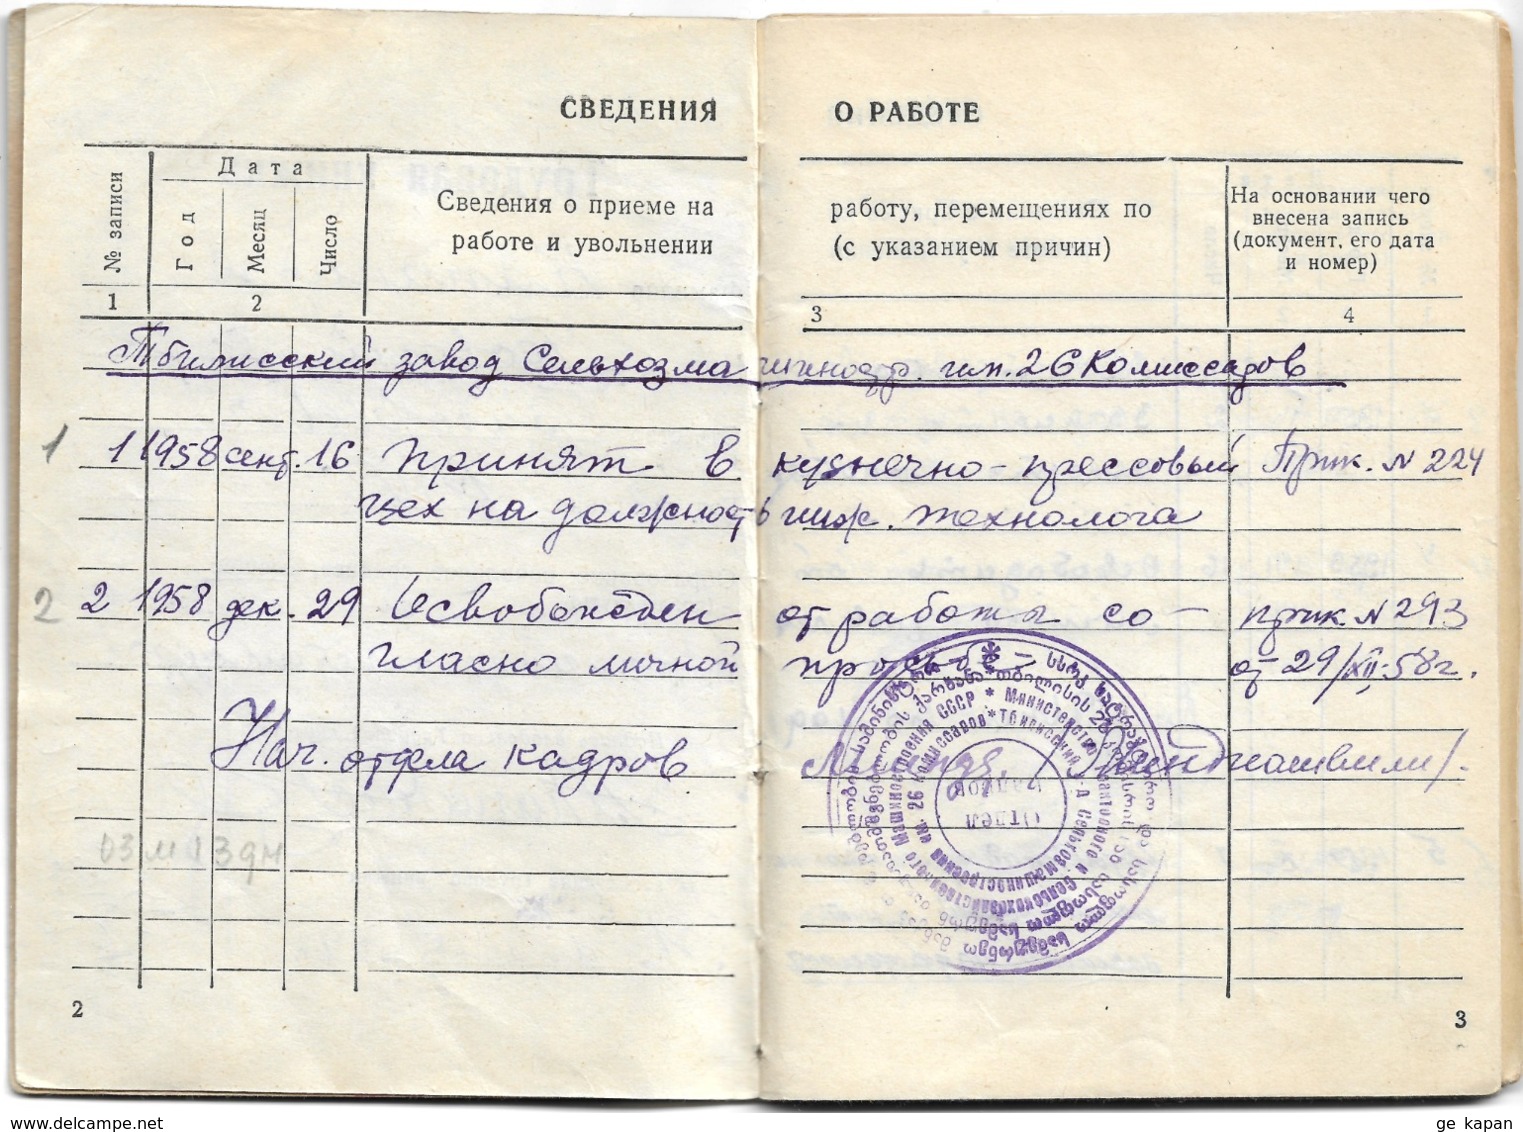 СВЕДЕНИЯ О РАБОТЕ
№ записи
Дата
Год
Месяц
Число
Сведения о приеме на работу, перемещениях по
работе и увольнении (с указанием причин)
На основании чего
внесена запись
(документ, его дата
и номер)
1 2 3 4
Тбилисский завод Сельхозмашиностр. им. 26 Комиссаров
1 1 1958 сент. 16 Принят в кузнечно-прессовый Прик. N 224
цех на должность инж. технолога
2 2 1958 дек. 29 Освобожден от работы со- прик. N 293
гласно личной просьбе- от 29/XII-58 г.
Нач. отдела кадров
03 м 13 дн
Министерство
Машиностроения СССР
Тбилисский
Сельхозмашиностроения им. 26 Комиссаров
Отдел
кадров
2
3
ge_kapan